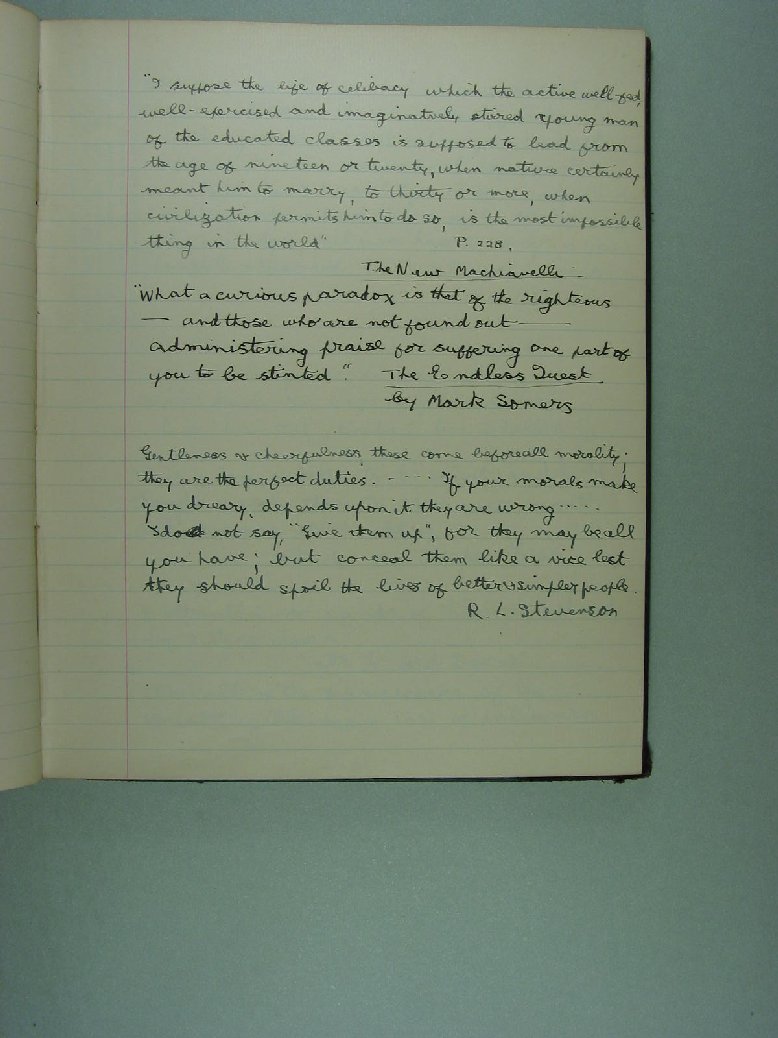 "I suppose the life of celibacy which the active well-fed,
well-exercised and imaginatively stirred young man
of the educated classes is supposed to lead from
the age of nineteen or twenty, when nature certainly
meant him to marry, to thirty or more, when
civilization permits him to do so, is the most impossible
thing in the world" P. 228.
The New Machiavelli -
"What a curious paradox is that of the righteous
— and those who are not found out —
administering praise for suffering one part of
you to be stinted". The Endless Quest.
by Mark Somers
Gentleness & cheerfulness, these come before all morality;
they are the perfect duties. - ... If your morals make
you dreary, depends upon it they are wrong .....
I do not say, "Give them up", for they may be all
you have; but conceal them like a vice lest
they should spoil the lives of better & simpler people.
R L. Stevenson